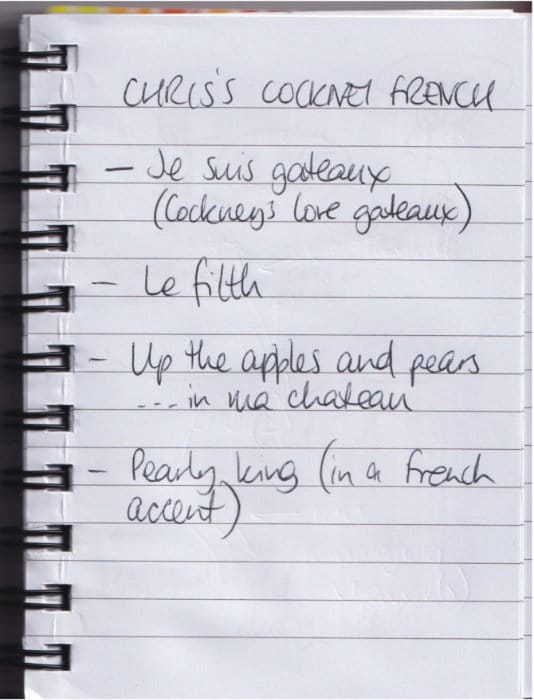 CHRIS'S COCKNEY FRENCH
- Je suis gateaux
(Cockneys love gateaux)
- Le filth
- Up the apples and pears
... in ma chateau
- Pearly king (in a french
accent)